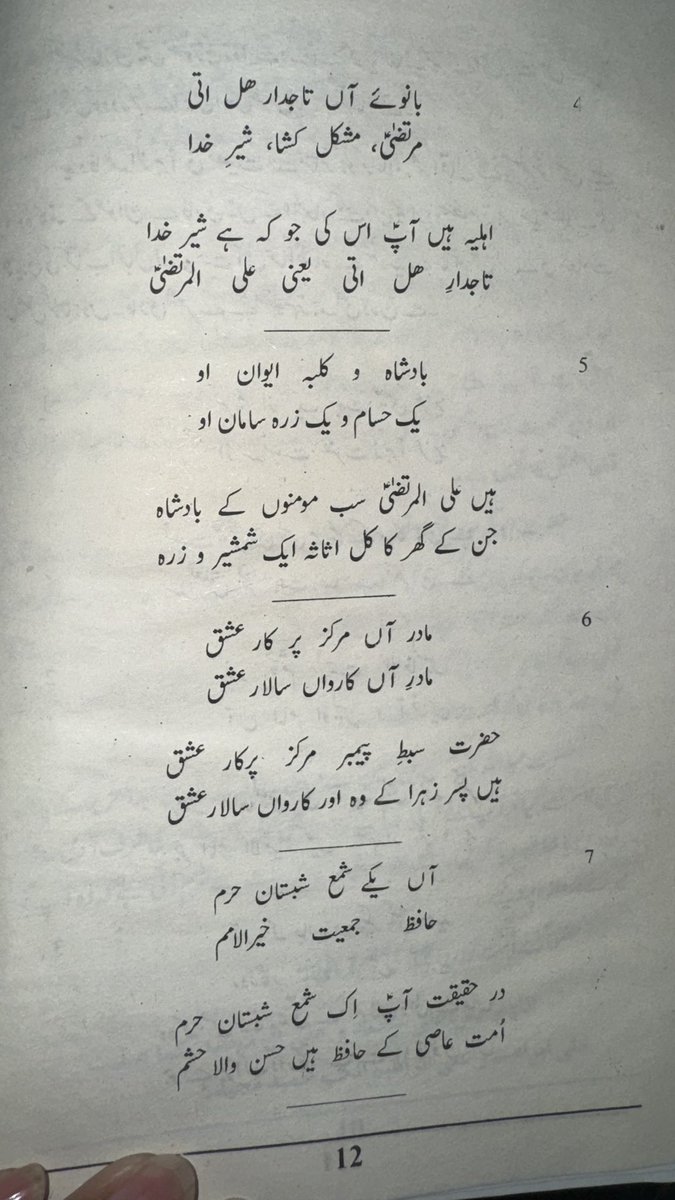 4
بانوئے آں تاجدار ھل اتی
مرتضیٰؑ، مشکل کشا، شیرِ خدا
اہلیہ ہیں آپؑ اس کی جو کہ ہے شیر خدا
تاجدارِ ھل اتی یعنی علی المرتضیٰؑ
5
بادشاہ و کلبہ ایوان او
یک حسام و یک زرہ سامان او
ہیں علی المرتضیٰؑ سب مومنوں کے بادشاہ
جن کے گھر کا کل اثاثہ ایک شمشیر و زرہ
6
مادر آں مرکز پر کار عشق
مادرِ آں کارواں سالار عشق
حضرت سبطِ پیمبر مرکز پرکار عشق
ہیں پسر زہرا کے وہ اور کارواں سالار عشق
7
آں یکے شمع شبستان حرم
حافظ جمعیت خیرالامم
در حقیقت آپؑ اِک شمع شبستان حرم
اُمت عاصی کے حافظ ہیں حسن والا حشم
12